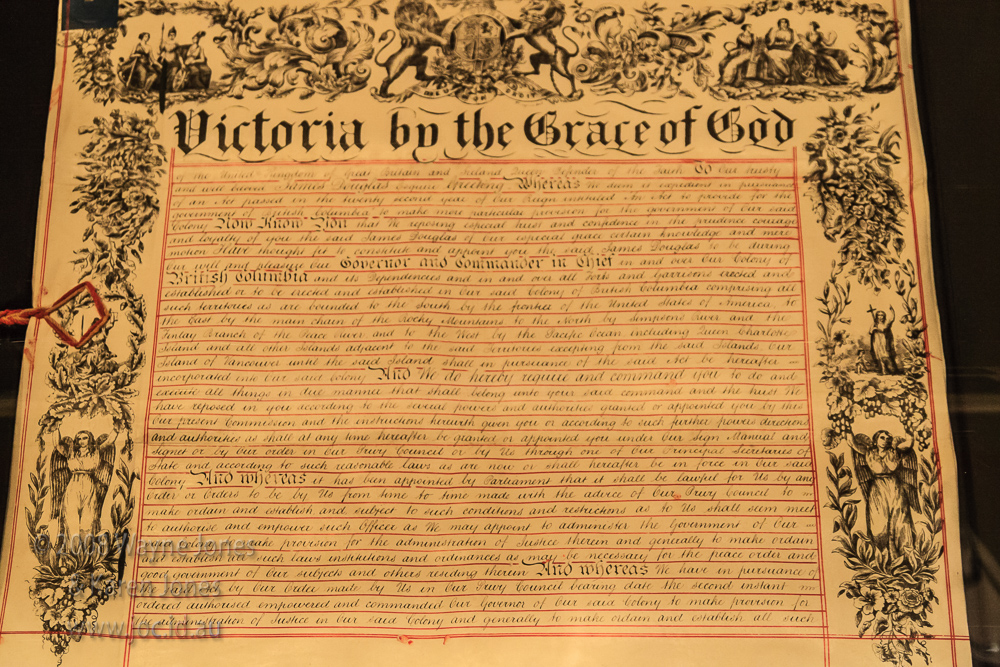 Victoria by the Grace of God
of the United Kingdom of Great Britain and Ireland Queen Defender of the Faith To Our trusty
and well beloved James Douglas Esquire Greeting Whereas We deem it expedient in pursuance
of an Act passed in the twenty second year of Our Reign intituled An Act to provide for the
government of British Columbia to make more particular provision for the government of Our said
Colony Now Know You that We reposing especial trust and confidence in the prudence courage
and loyalty of you the said James Douglas of Our especial grace certain knowledge and mere
motion Have thought fit to constitute and appoint you the said James Douglas to be during
Our will and pleasure Our Governor and Commander in Chief in and over Our Colony of
British Columbia and its Dependencies and in and over all Forts and Garrisons erected and
established or to be erected and established in Our said Colony of British Columbia comprising all
such territories as are bounded to the South by the frontier of the United States of America to
the East by the main chain of the Rocky Mountains to the North by Simpsons River and the
Finlay Branch of the Peace River and to the West by the Pacific Ocean including Queen Charlotte
Island and all other Islands adjacent to the said Territories excepting from the said Islands Our
Island of Vancouver until the said Island shall in pursuance of the said Act be hereafter
incorporated into Our said Colony And We do hereby require and command you to do and
execute all things in due manner that shall belong unto your said command and the trust We
have reposed in you according to the several powers and authorities granted or appointed you by this
Our present Commission and the instructions herewith given you or according to such further powers directions
and authorities as shall at any time hereafter be granted or appointed you under Our Sign Manual and
Signet or by Our order in Our Privy Council or by Us through one of Our Principal Secretaries of
State and according to such reasonable laws as are now or shall hereafter be in force in Our said
Colony And whereas it has been appointed by Parliament that it shall be lawful for Us by any
Order or Orders to be by Us from time to time made with the advice of Our Privy Council to
make ordain and establish and subject to such conditions and restrictions as to Us shall seem meet
to authorise and empower such Officer as We may appoint to administer the Government of Our
said Colony to make provision for the administration of Justice therein and generally to make ordain
and establish all such laws institutions and ordinances as may be necessary for the peace order and
good government of Our subjects and others residing therein And whereas We have in pursuance of
the said Act by Our Order made by Us in Our Privy Council bearing date the second instant
ordered authorised empowered and commanded Our Governor of Our said Colony to make provision for
the administration of Justice in Our said Colony and generally to make ordain and establish all such
Wayne Jones
Karen Jones